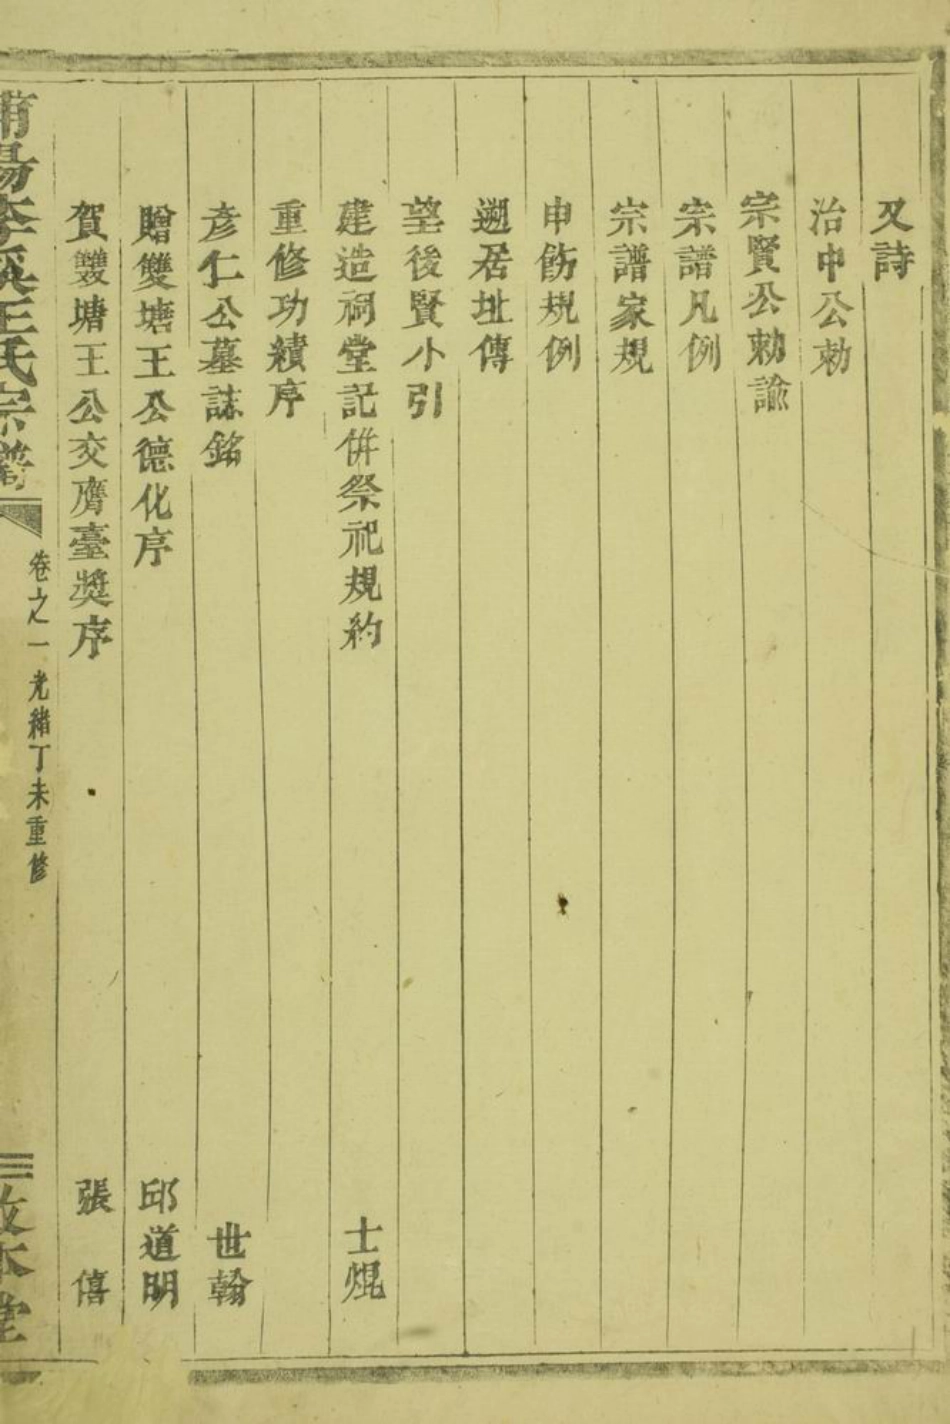 又詩
治中公勅
宗賢公勅諭
宗譜凡例
宗譜家規
申飭規例
遡居址傳
望後賢小引
建造祠堂記併祭祀規約 士焜
重修功績序
彥仁公墓誌銘 世翰
贈雙塘王公德化序 邱道明
賀雙塘王公交膺臺獎序 張僖
王氏宗譜 卷之一 光緒丁未重修 三 本堂